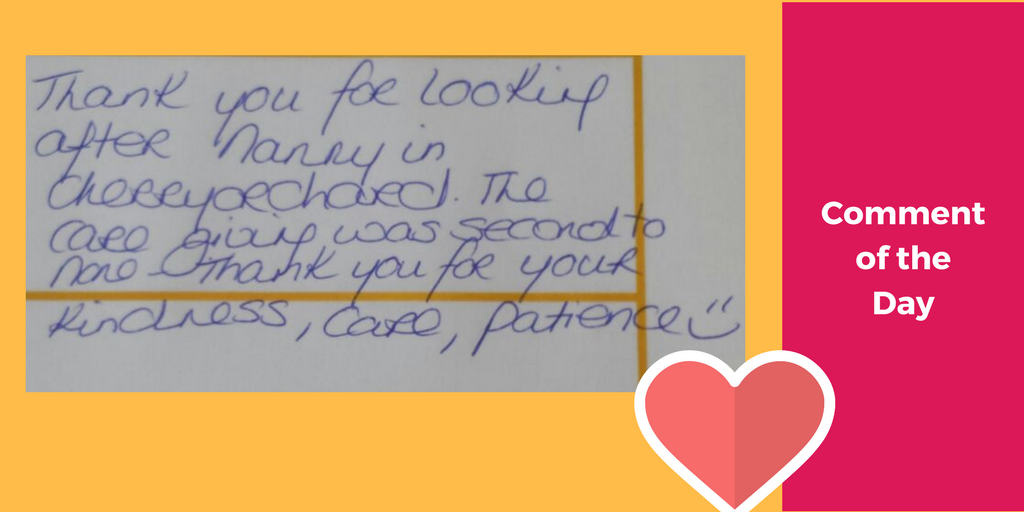 Thank you for looking
after Nanny in
Cherryorchard. The
care giving was second to
none - Thank you for your
kindness, care, patience
Comment
of the
Day